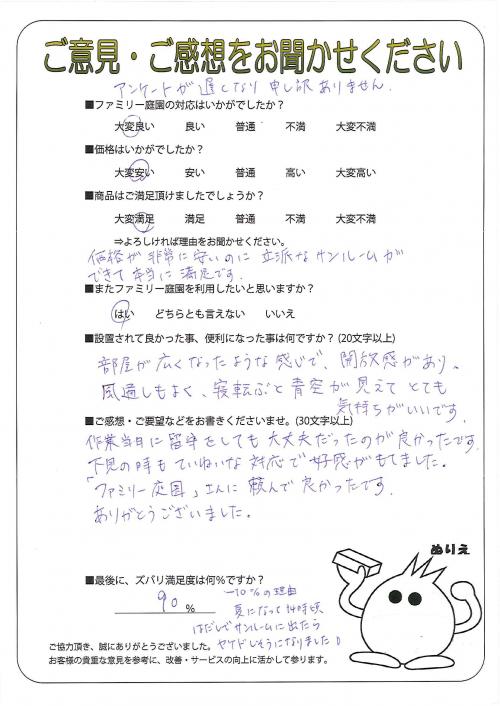 ご意見・ご感想をお聞かせください
アンケートが遅くなり 申し訳ありません.
■ファミリー庭園の対応はいかがでしたか？
大変良い 良い 普通 不満 大変不満
■価格はいかがでしたか？
大変安い 安い 普通 高い 大変高い
■商品はご満足頂けましたでしょうか？
大変満足 満足 普通 不満 大変不満
⇒よろしければ理由をお聞かせください。
価格が非常に安いのに 立派なサンルームが
できて本当に満足です.
■またファミリー庭園を利用したいと思いますか？
はい どちらとも言えない いいえ
■設置されて良かった事、便利になった事は何ですか？(20文字以上)
部屋が広くなったような感じで、開放感があり、
風通しもよく、寝転ぶと青空が見えて とても
気持ちがいいです.
■ご感想・ご要望などをお書きくださいませ。(30文字以上)
作業当日に留守をしても大丈夫だったのが良かったです.
下見の時もていねいな対応で好感がもてました。
「ファミリー庭園」さんに頼んで良かったです.
ありがとうございました。
ぬりえ
■最後に、ズバリ満足度は何%ですか？
90 %
-10%の理由
夏になって14時頃
はだしでサンルームに出たら
ヤケドしそうになりました!
ご協力頂き、誠にありがとうございました。
お客様の貴重な意見を参考に、改善・サービスの向上に活かして参ります。